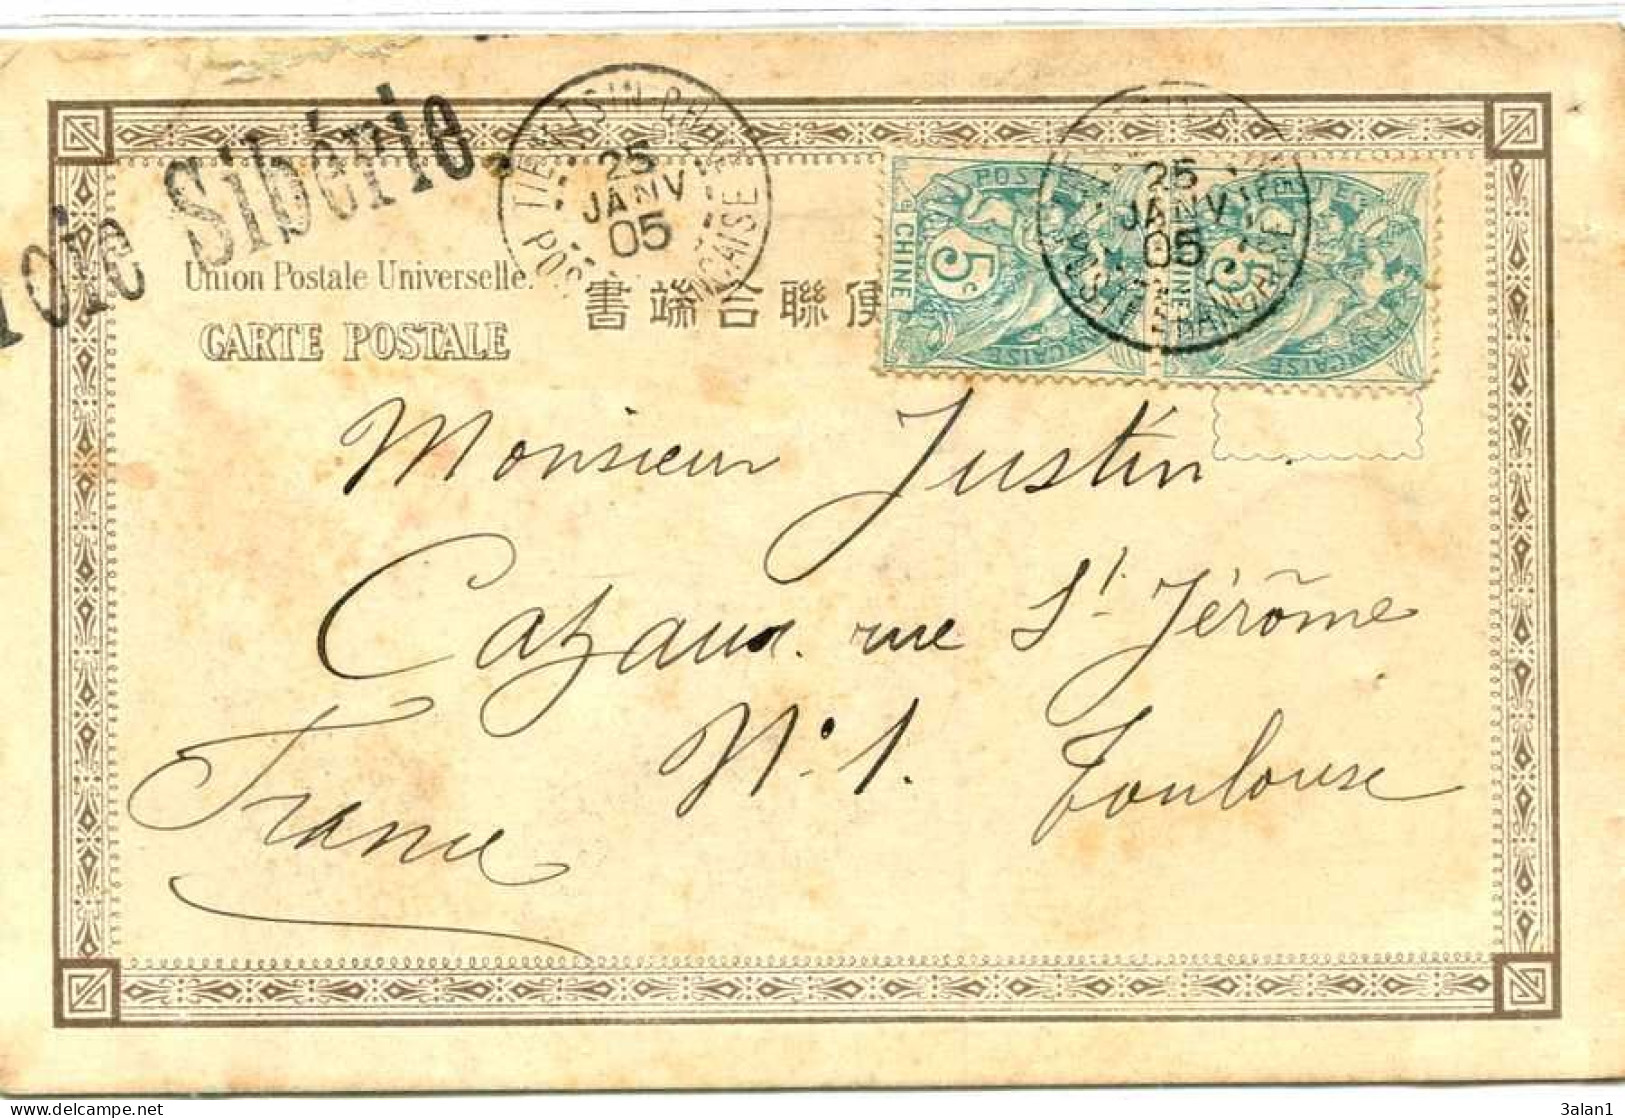 Voie Sibérie.
TIEN-TSIN-CHINE POSTE FRANÇAISE
25
JANV
05
25
JANV
05
POSTE FRANÇAISE
CHINE
5c
POSTE FRANÇAISE
CHINE
5c
Union Postale Universelle.
CARTE POSTALE
書端合聯
Monsieur Justin
Cazaux. rue St Jérôme
N° 1. Toulouse
France
3alan1
delcampe.net